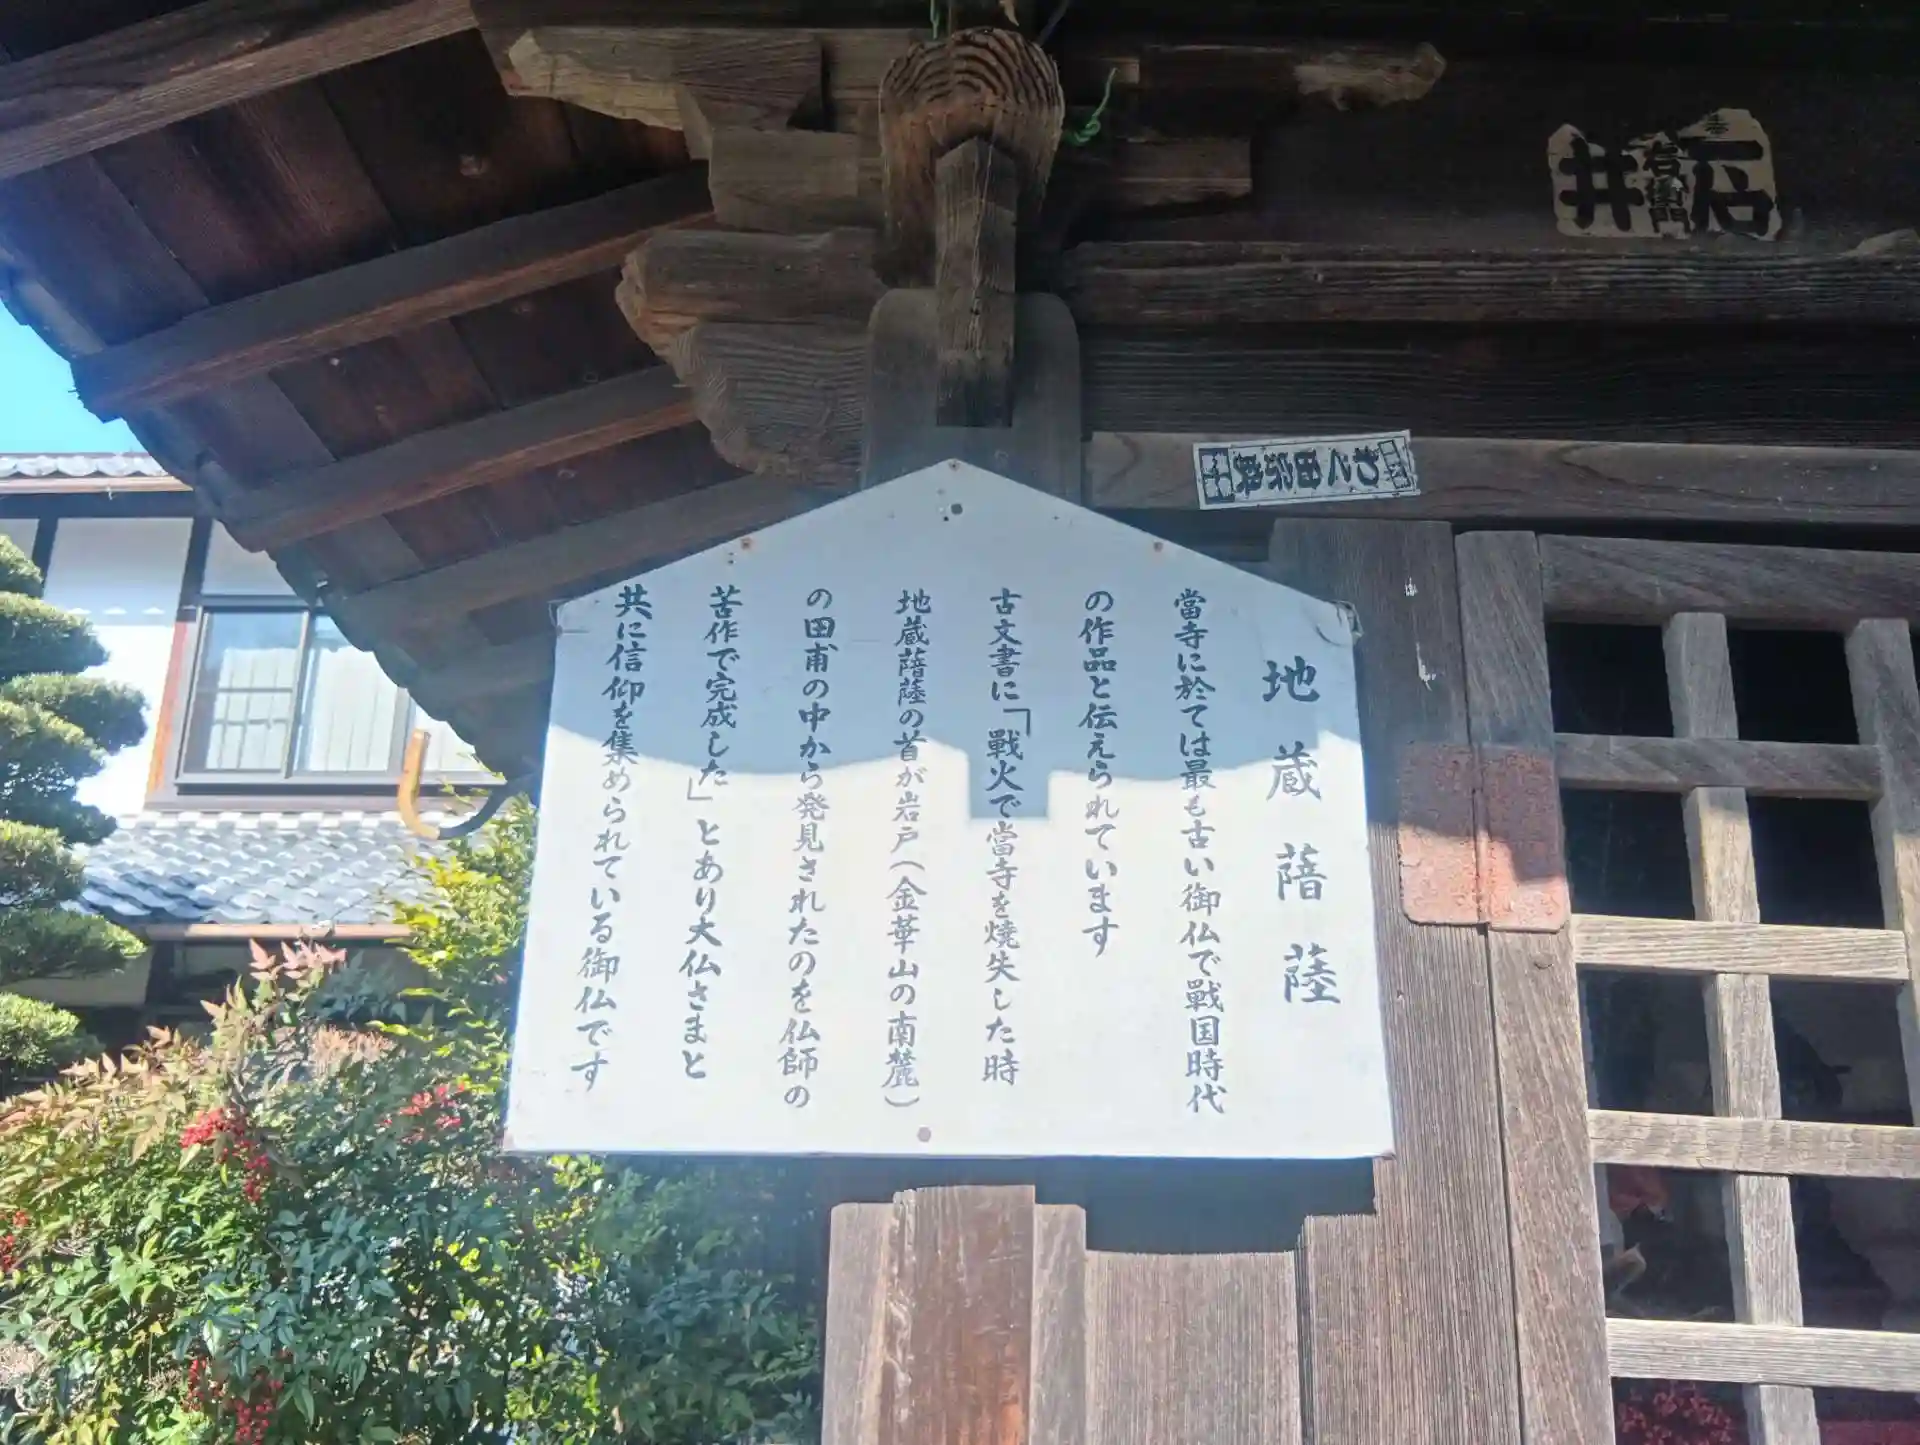 地蔵菩薩
當寺に於ては最も古い御仏で戦国時代
の作品と伝えられています
古文書に「戰火で當寺を焼失した時
地蔵菩薩の首が岩戸（金華山の南麓）
の田甫の中から発見されたのを仏師の
苦作で完成した」とあり大仏さまと
共に信仰を集められている御仏です